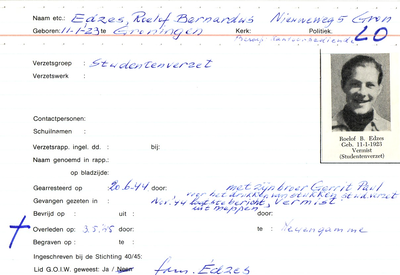 Naam etc.: Edzes, Roelof Bernardus Nieuweweg 5 Gron
Geboren: 11-1-23 te Groningen Kerk: Politiek:
Beroep kantoorbediende LO
Verzetsgroep : Studentenverzet
Verzetswerk :
Contactpersonen:
Schuilnamen :
Roelof B. Edzes
Geb. 11-1-1923
Vermist
(Studentenverzet)
Verzetsrapp. ingel. dd. : bij:
Naam genoemd in rapp.:
op bladzijde:
Gearresteerd op 20-6-44 door: met zijn broer Gerrit Paul
voor het drukken
Gevangen gezeten in: Nov. '44 laatste bericht, vermist
uit Meppen,
Bevrijd op : uit : door:
Overleden op: 3.5.'45 door: te: Neuengamme
Begraven op : te :
Ingeschreven bij de Stichting 40/45:
Lid G.O.I.W. geweest: Ja / Neen fam. Edzes